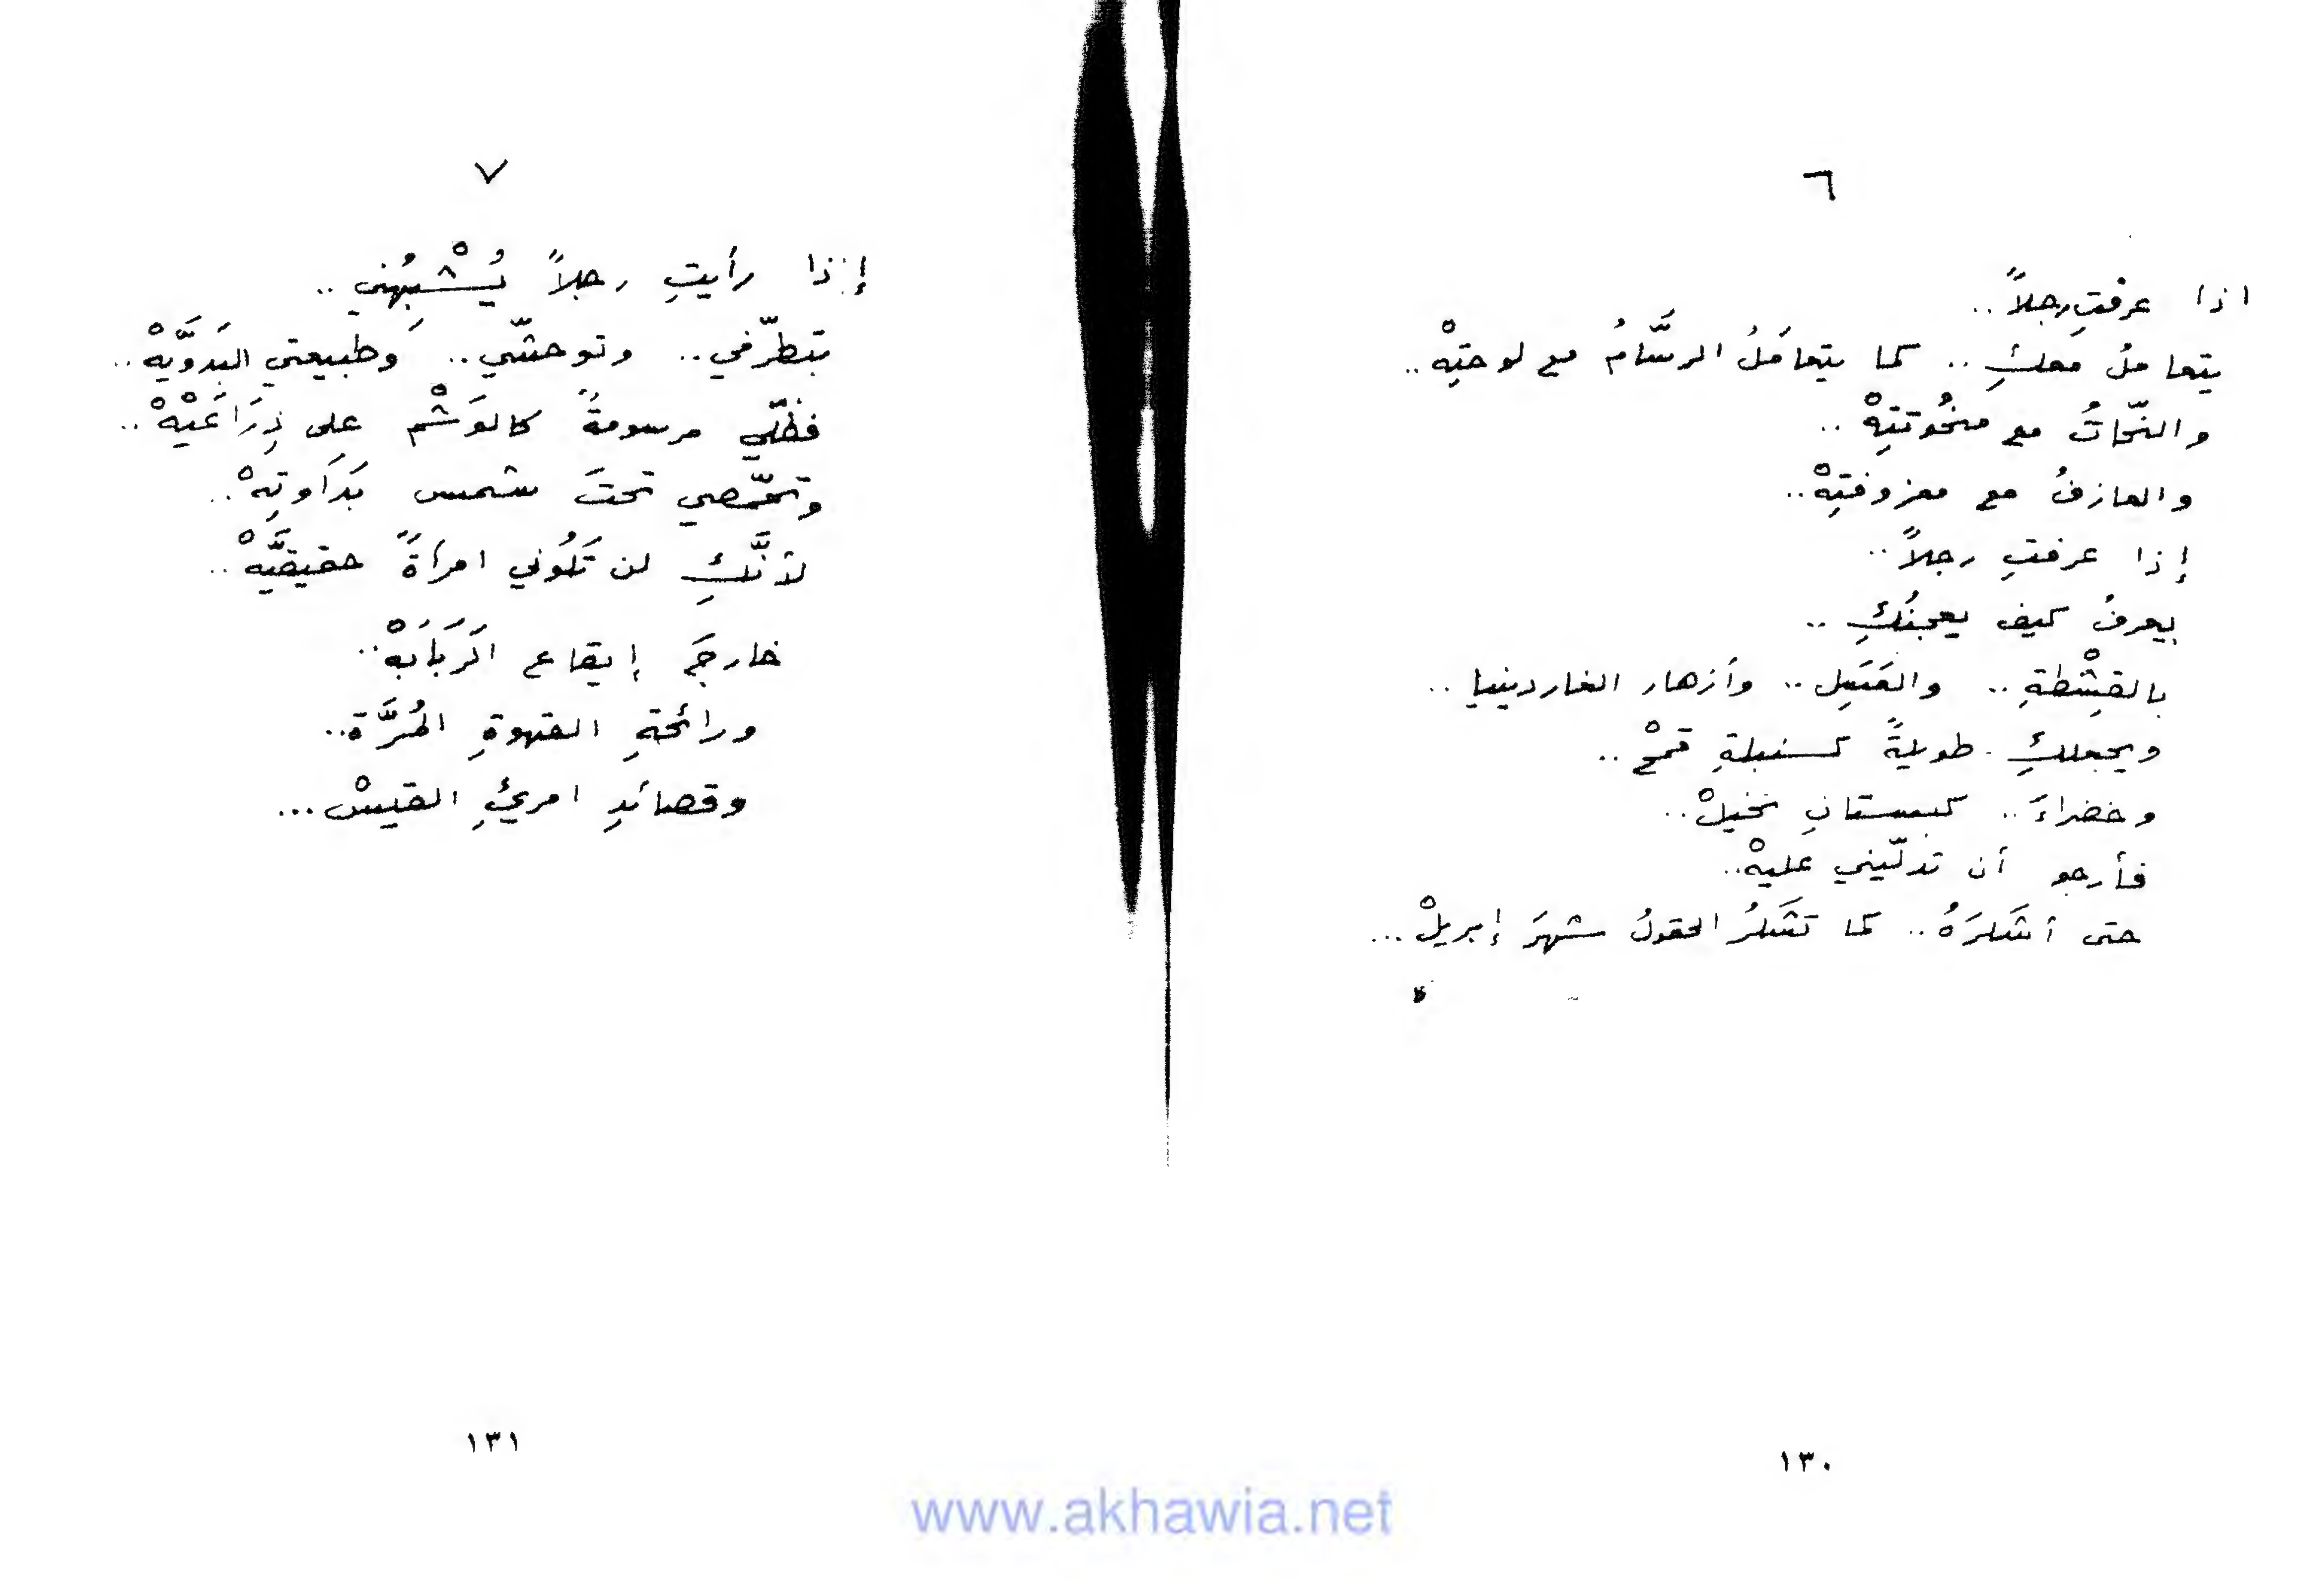 ٦
اذا عرفتِ رجلاً ..
يتعاملُ معكِ .. كما يتعامَلُ الرسَّامُ مع لوحتِهْ ..
والنحّاتُ مع منحُوتتِهْ ..
والعازفُ مع معزوفتِهْ ..
إذا عرفتِ رجلاً ..
يعرفُ كيف يعجنُكِ ..
بالقِشْطةِ .. والعَسَلِ .. وأزهار الغاردينيا ..
ويجعلكِ . طويلةً كسنبلةِ قمحْ ..
وخضراءَ .. كبستانِ نخيلْ ..
فأرجو أن تدلّيني عليهْ ..
حتى أشكرَهُ .. كما تشكَرُ الحقولُ شهرَ إبريلْ ...
١٣٠
٧
إذا رأيتِ رجلاً يُشْبِهُني ..
بتطرّفي .. وتوحشّي .. وطبيعتي البَدَويَّهْ ..
فظلّي مرسومةً كالوَشْمِ على ذِرَاعَيْهْ ..
وتحمّصي تحتَ شمس بَدَاوتِهْ ..
لأنَّكِ لن تَكُوني امرأةً حقيقيَّهْ ..
خارجَ إيقاع الرَبَابَهْ ..
ورائحةِ القهوةِ المُرَّة ..
وقصائدِ امرئِ القيسْ ...
١٣١
www.akhawia.net